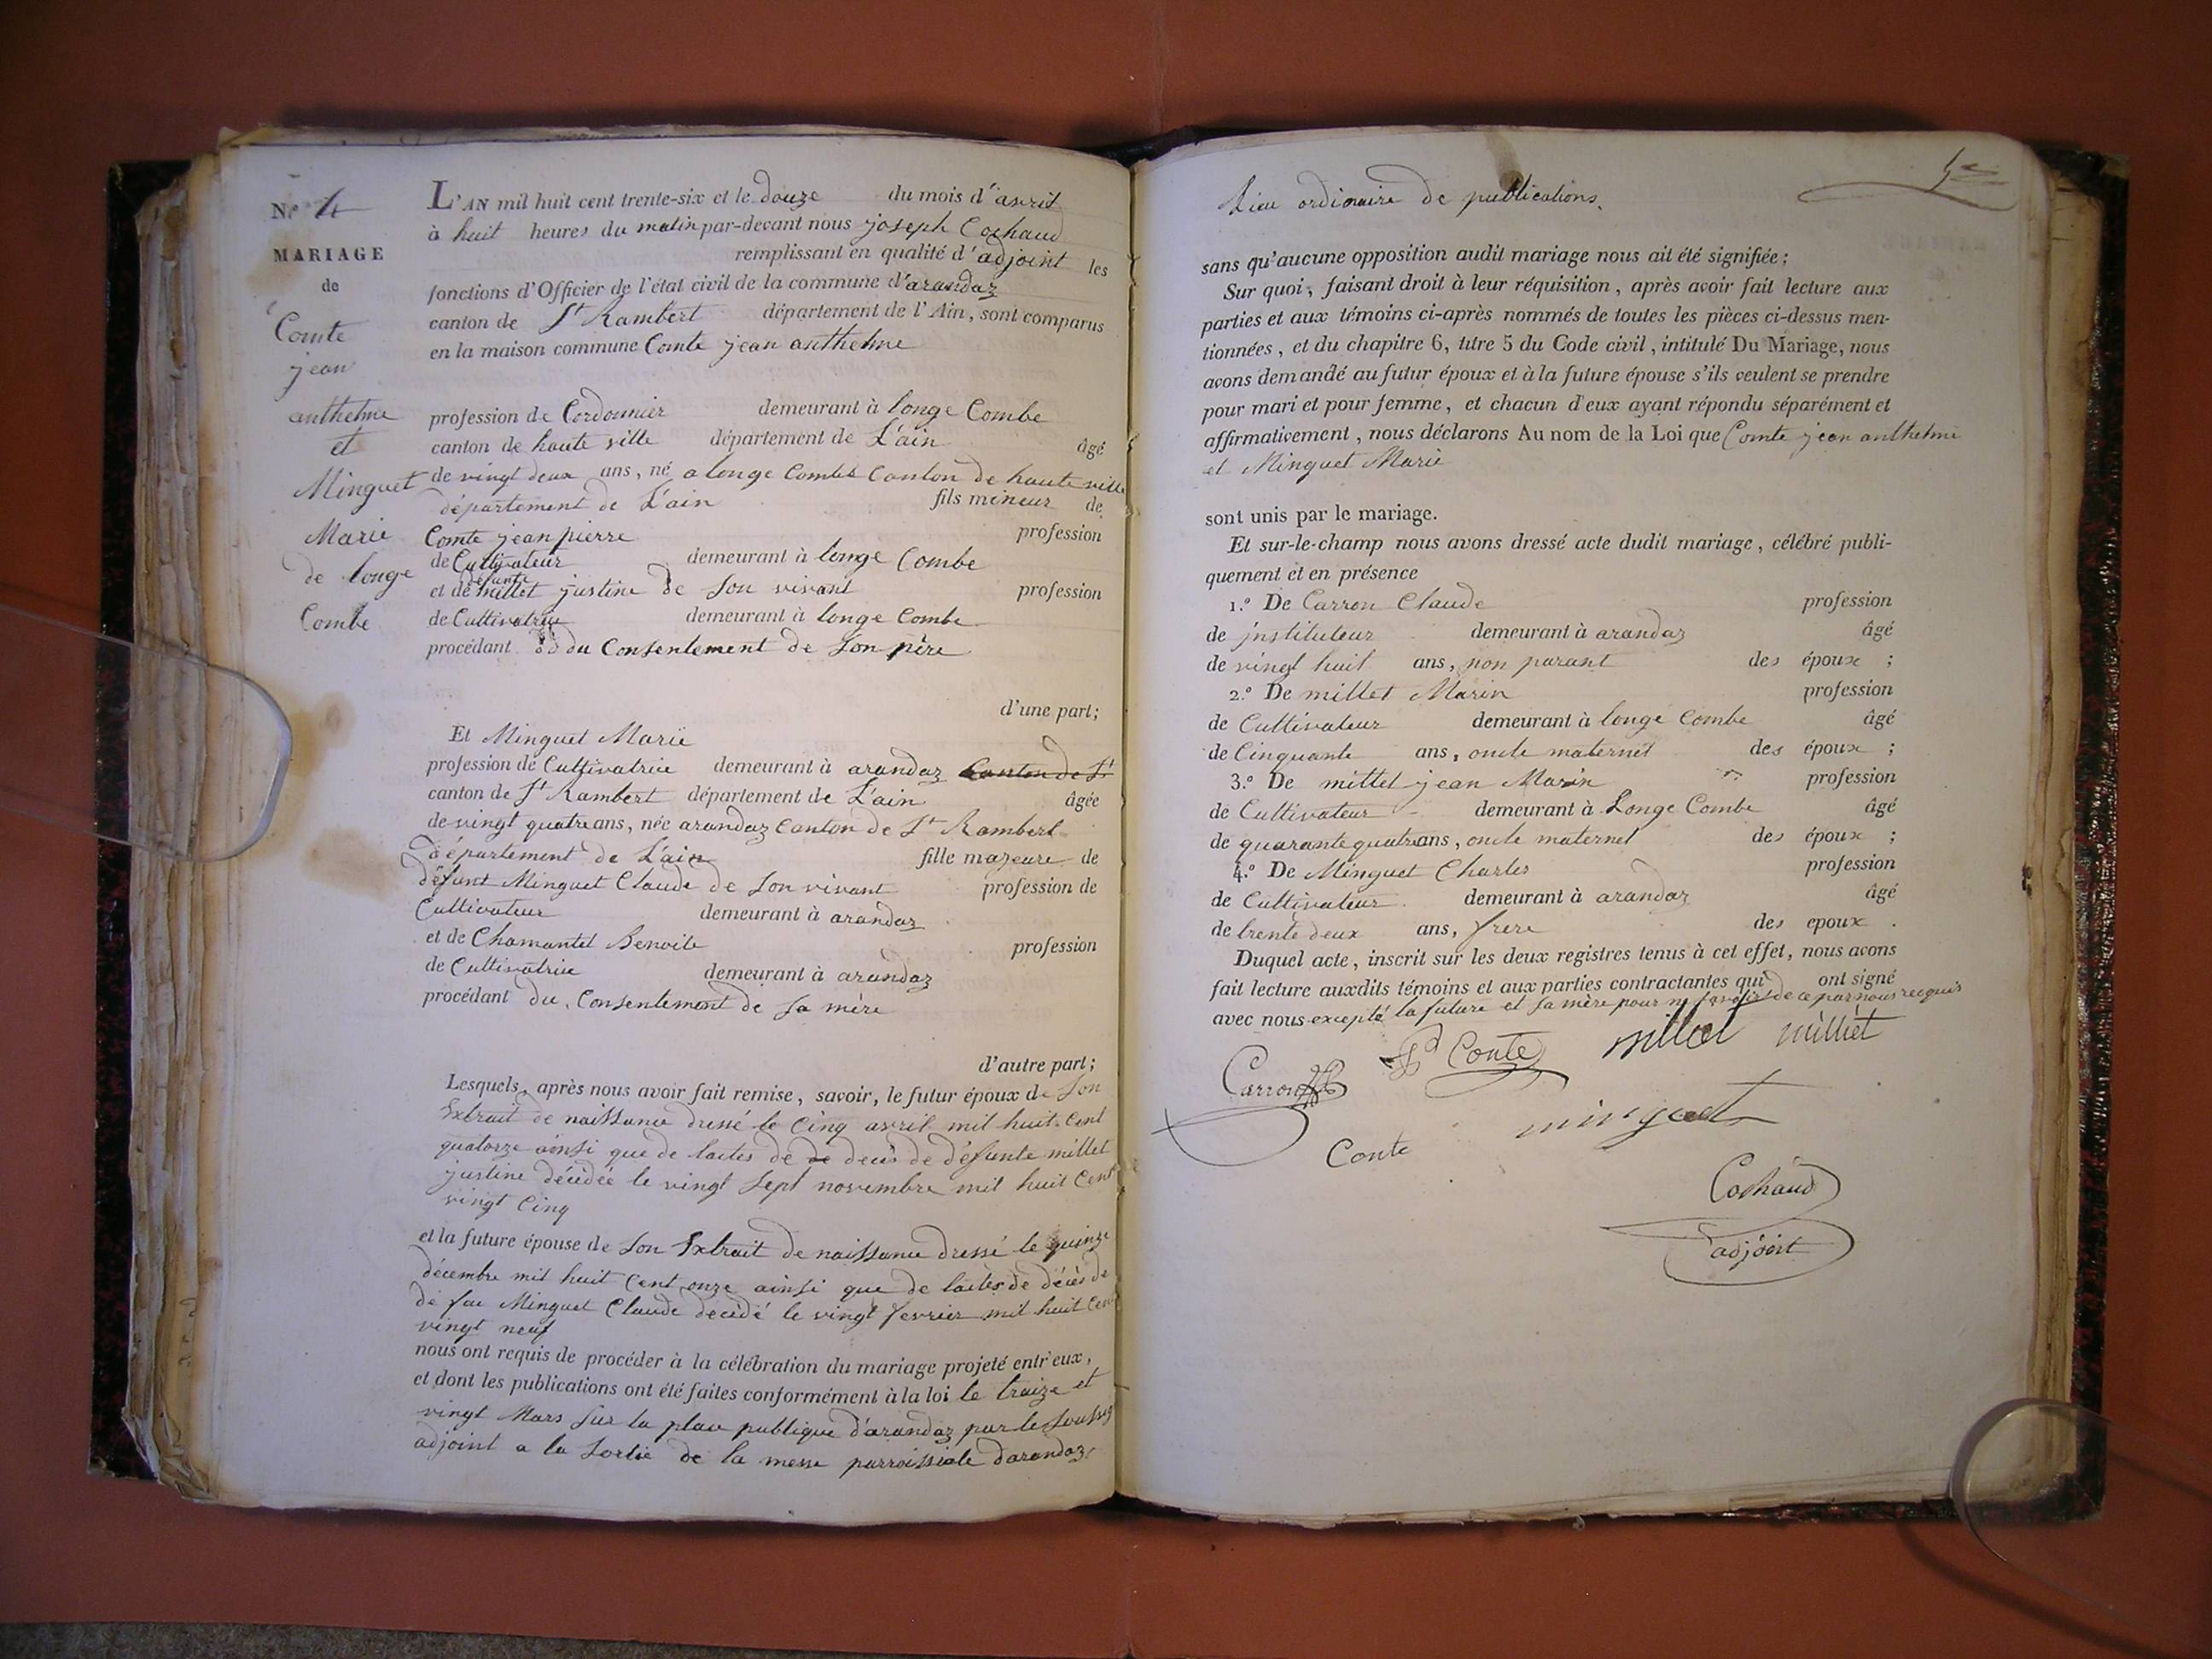 N.º 4
MARIAGE
de
Comte
jean
anthelme
et
Minguet
Marie
de longe
Combe
L'AN mil huit cent trente-six et le douze du mois d'avril
à huit heures du matin par-devant nous joseph Cochaud
remplissant en qualité d'adjoint les
fonctions d'Officier de l'état civil de la commune d'arandaz
canton de St Rambert département de l'Ain, sont comparus
en la maison commune Comte jean anthelme
profession de Cordonnier demeurant à longe Combe
canton de haute ville département de L'ain âgé
de vingt deux ans, né a longe Combe Canton de haute ville
département de L'ain fils mineur de
Comte jean pierre profession
de Cultivateur demeurant à longe Combe
et de défunte millet justine de son vivant profession
de Cultivatrice demeurant à longe Combe
procédant du Consentement de son père
d'une part;
Et Minguet Marie
profession de Cultivatrice demeurant à arandaz Canton de St
canton de St Rambert département de L'ain âgée
de vingt quatre ans, née arandaz Canton de St Rambert
département de L'ain fille majeure de
défunt Minguet Claude de son vivant profession de
Cultivateur demeurant à arandaz
et de Chamantel Benoite profession
de Cultivatrice demeurant à arandaz
procédant du Consentement de sa mère
d'autre part;
Lesquels, après nous avoir fait remise, savoir, le futur époux de son
Extrait de naissance dressé le Cinq avril mil huit Cent
quatorze ainsi que de lactes de de decès de défunte millet
justine décédée le vingt sept novembre mil huit Cent
vingt Cinq
et la future épouse de son Extrait de naissance dressé le quinze
décembre mil huit Cent onze ainsi que de lactes de décès de
de feu Minguet Claude décédé le vingt fevrier mil huit Cent
vingt neuf
nous ont requis de procéder à la célébration du mariage projeté entr'eux,
et dont les publications ont été faites conformément à la loi le traize et
vingt Mars sur la place publique d'arandaz par le
adjoint a la sortie de la messe parroissiale darandaz
Lieu ordinaire de publications.
sans qu'aucune opposition audit mariage nous ait été signifiée;
Sur quoi, faisant droit à leur réquisition, après avoir fait lecture aux
parties et aux témoins ci-après nommés de toutes les pièces ci-dessus men-
tionnées, et du chapitre 6, titre 5 du Code civil, intitulé Du Mariage, nous
avons demandé au futur époux et à la future épouse s'ils veulent se prendre
pour mari et pour femme, et chacun d'eux ayant répondu séparément et
affirmativement, nous déclarons Au nom de la Loi que Comte jean anthelme
et Minguet Marie
sont unis par le mariage.
Et sur-le-champ nous avons dressé acte dudit mariage, célébré publi-
quement et en présence
1.º De Carron Claude profession
de jnstituteur demeurant à arandaz âgé
de vingt huit ans, non parant des époux ;
2.º De millet Marin profession
de Cultivateur demeurant à longe Combe âgé
de Cinquante ans, oncle maternel des époux ;
3.º De millet jean Marin profession
de Cultivateur demeurant à Longe Combe âgé
de quarante quatre ans, oncle maternel des époux ;
4.º De Minguet Charles profession
de Cultivateur demeurant à arandaz âgé
de trente deux ans, frere des epoux .
Duquel acte, inscrit sur les deux registres tenus à cet effet, nous avons
fait lecture auxdits témoins et aux parties contractantes qui ont signé
avec nous excepté la future et sa mère pour ne savoir de ce par nous requis
Carron Conte millet milliet
minguet
Conte
Cochaud
adjoint